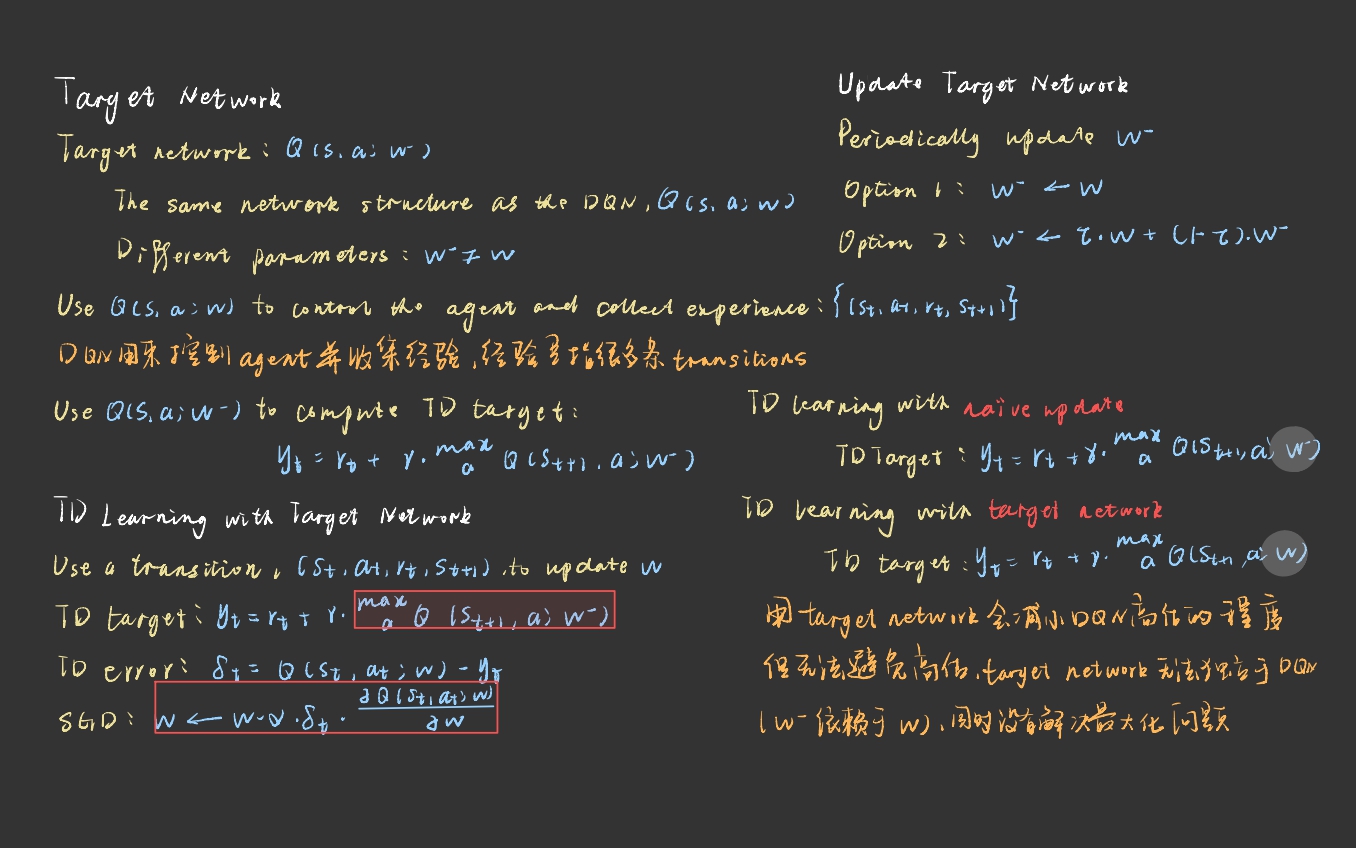 Target Network
Target network: Q(s, a; w⁻)
The same network structure as the DQN, Q(s, a; w)
Different parameters: w⁻ ≠ w
Use Q(s, a; w) to control the agent and collect experience: {(sₜ, aₜ, rₜ, sₜ₊₁)}
DQN用来控制agent并收集经验,经验是指很多条transitions
Use Q(s, a; w⁻) to compute TD target:
yₜ = rₜ + γ · max_a Q(sₜ₊₁, a; w⁻)
TD Learning with Target Network
Use a transition, (sₜ, aₜ, rₜ, sₜ₊₁), to update w
TD target: yₜ = rₜ + γ · max_a Q (sₜ₊₁, a; w⁻)
TD error: δₜ = Q(sₜ, aₜ; w) − yₜ
SGD: w ← w − α · δₜ · ∂Q(sₜ, aₜ; w) / ∂w
Update Target Network
Periodically update w⁻
Option 1: w⁻ ← w
Option 2: w⁻ ← τ · w + (1−τ) · w⁻
TD learning with naïve update
TD Target: yₜ = rₜ + γ · max_a Q(sₜ₊₁, a; w⁻)
TD learning with target network
TD target: yₜ = rₜ + γ · max_a Q(sₜ₊₁, a; w)
用target network会减小DQN高估的程度
但无法避免高估,target network无法独立于DQN
(w⁻依赖于w),同时没有解决最大化问题